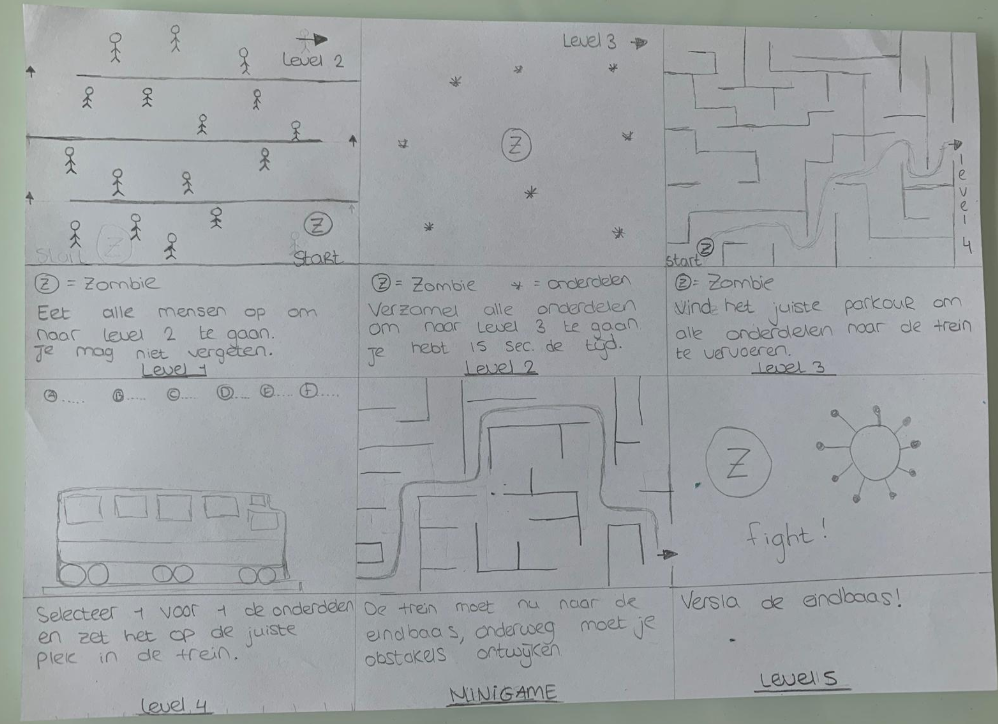 Level 2
Z
Start
Z
Start
Z = Zombie
Eet alle mensen op om
naar level 2 te gaan.
Je mag niet vergeten.
Level 1
Level 3
Z
Z = Zombie * = onderdelen
Verzamel alle onderdelen
om naar Level 3 te gaan
Je hebt 15 sec. de tijd.
Level 2
Level 4
Z
Start
Z = Zombie
Vind het juiste parkour om
alle onderdelen naar de trein
te vervoeren.
Level 3
A..... B..... C.... D.... E.... F....
Selecteer 1 voor 1 de onderdelen
en zet het op de juiste
plek in de trein.
Level 4
De trein moet nu naar de
eindbaas, onderweg moet je
obstakels ontwijken
MINIGAME
Z
fight!
Versla de eindbaas!
Level 5